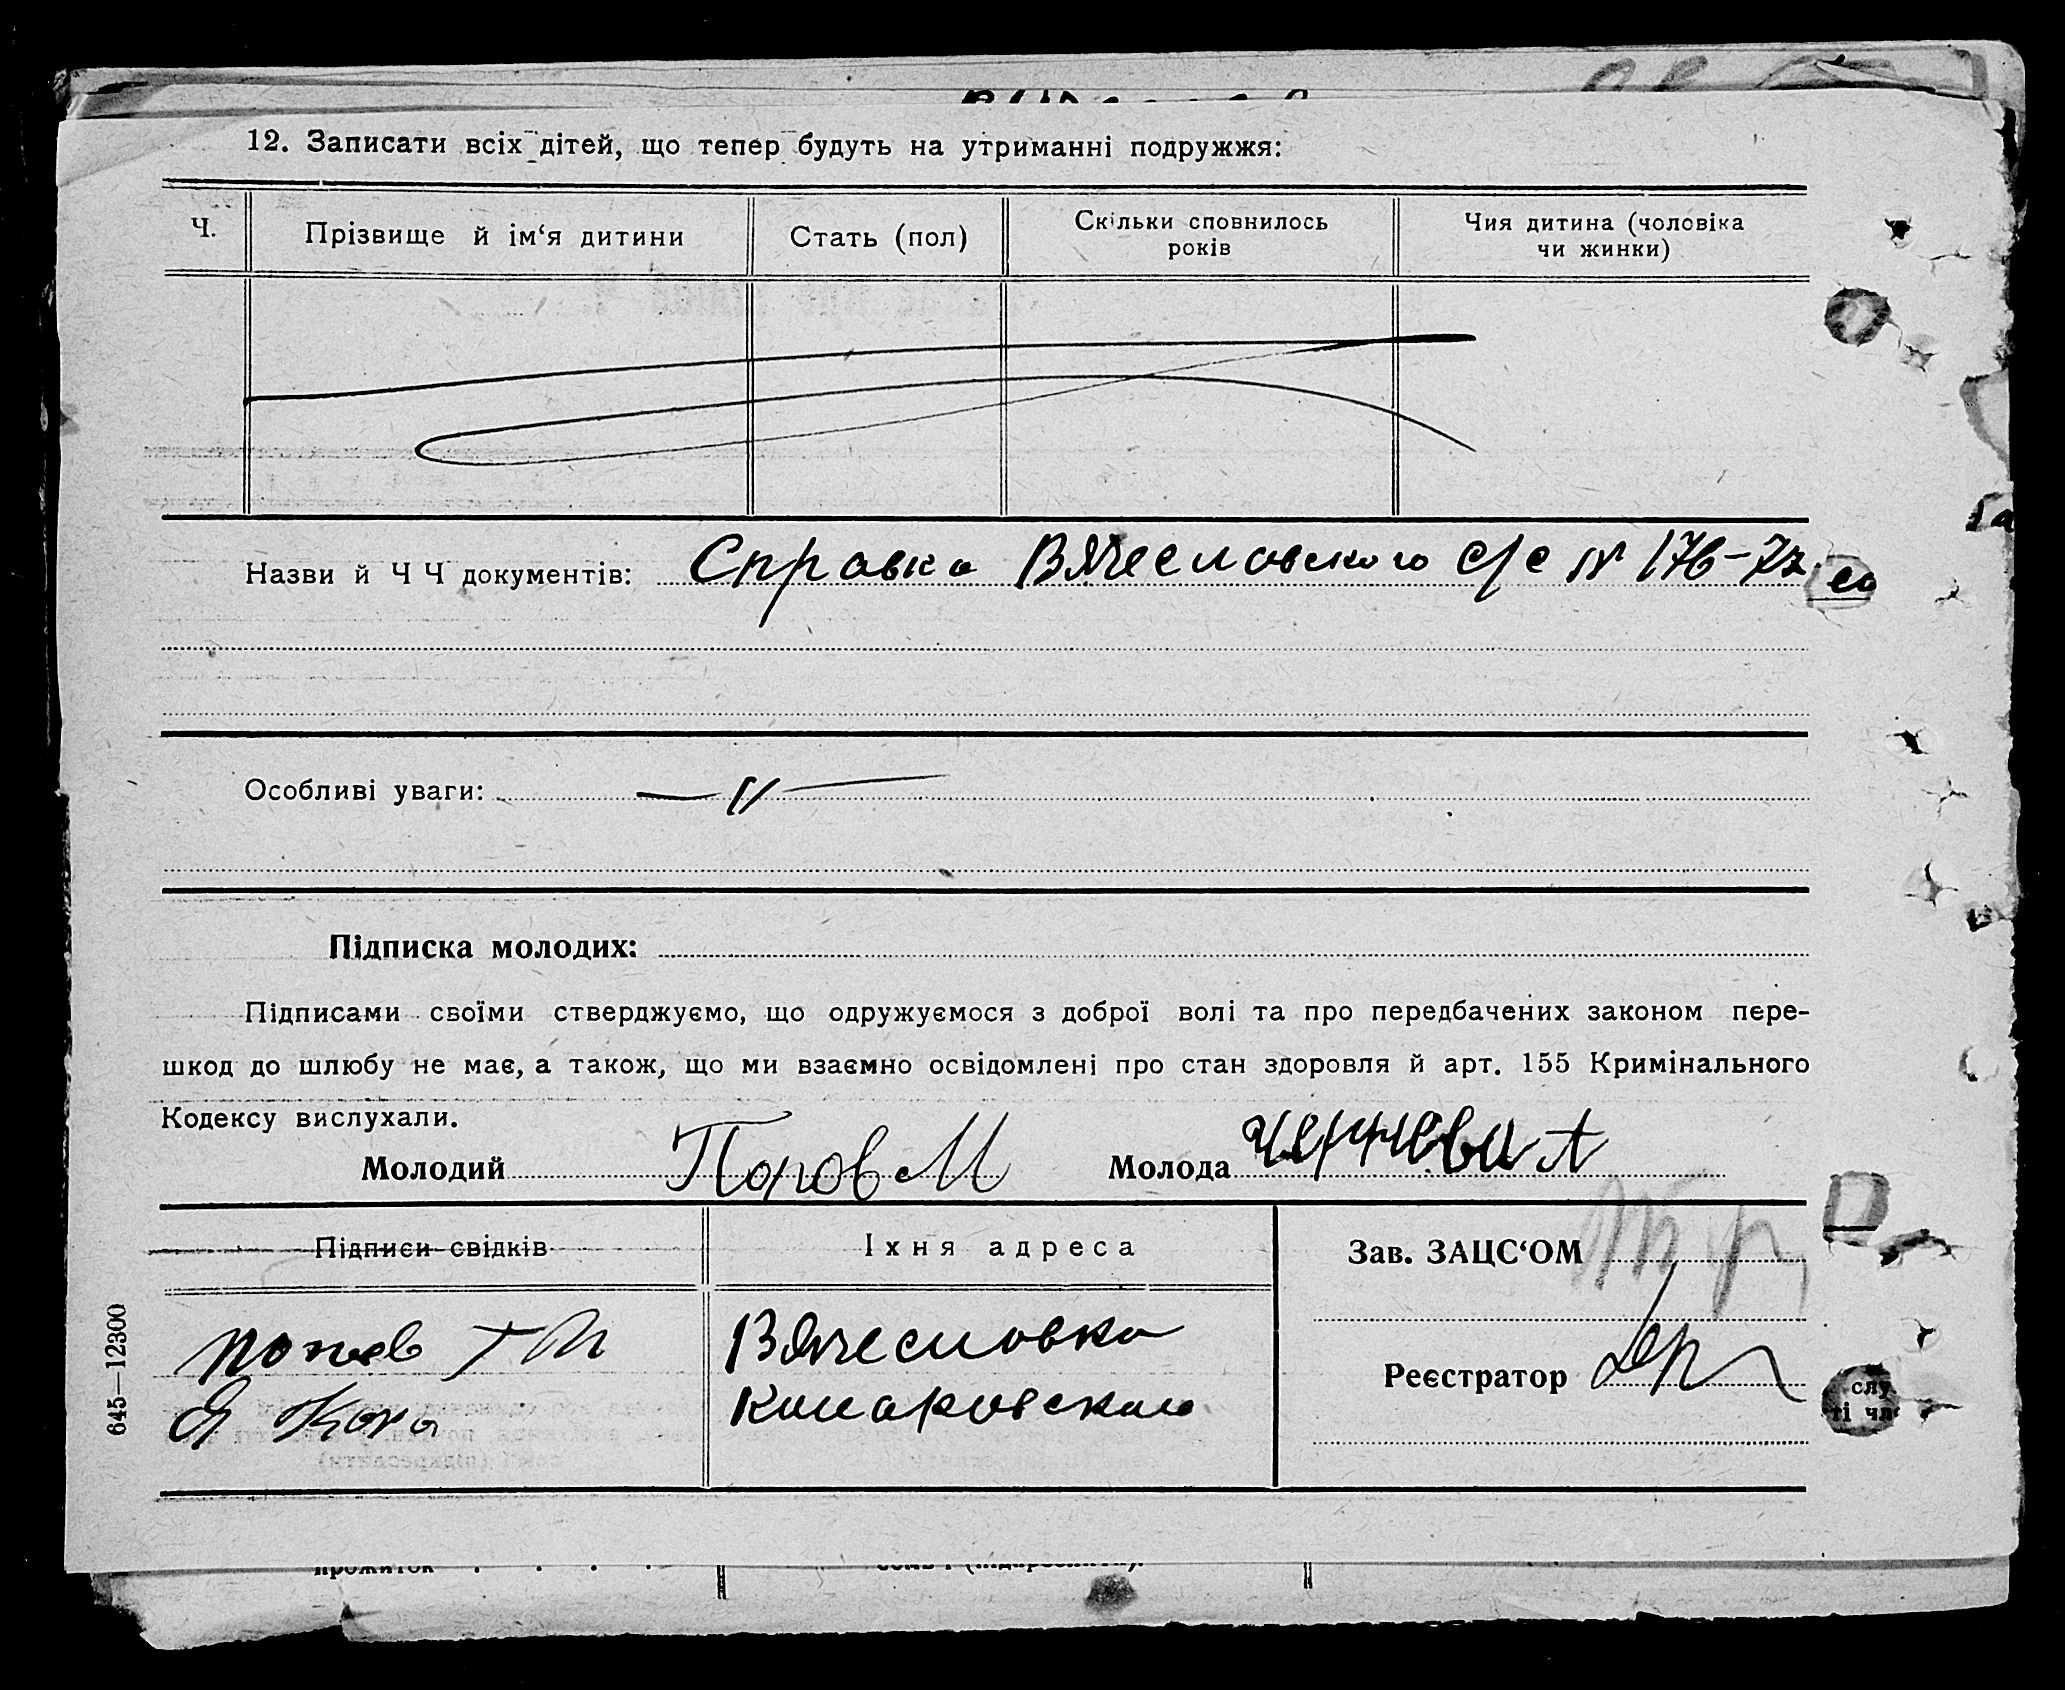 12. Записати всіх дітей, що тепер будуть на утриманні подружжя:
Ч. Прізвище й ім‘я дитини Стать (пол) Скільки сповнилось років Чия дитина (чоловіка чи жинки)
Назви й Ч Ч документів: Справка Вячесловского с/с № 176-72
Особливі уваги: — // —
Підписка молодих:
Підписами своїми стверджуємо, що одружуємося з доброї волі та про передбачених законом пере-
шкод до шлюбу не має, а також, що ми взаємно освідомлені про стан здоровля й арт. 155 Кримінального
Кодексу вислухали.
Молодий Попов М Молода А
Підписи свідків Іхня адреса Зав. ЗАЦС‘ОМ
Вячесловка
Реєстратор
645—12300
прожиток